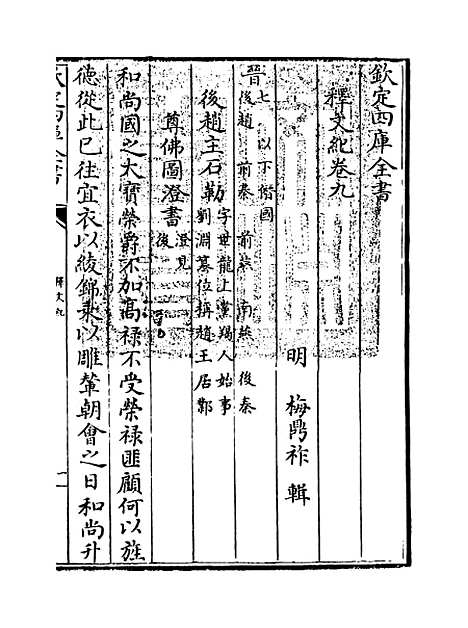 欽定四庫全書
釋文紀卷九
明 梅鼎祚 輯
晉七 以下僭國
後趙 前秦 前燕 南燕 後秦
後趙主石勒字世龍上黨羯人始事
劉淵篡位稱趙王居鄴
尊佛圖澄書澄見
後
和尚國之大寶榮爵不加高祿不受榮祿匪顧何以旌
德從此已往宜衣以綾錦乘以雕輦朝會之日和尚升
欽定四庫全書
釋文九
一